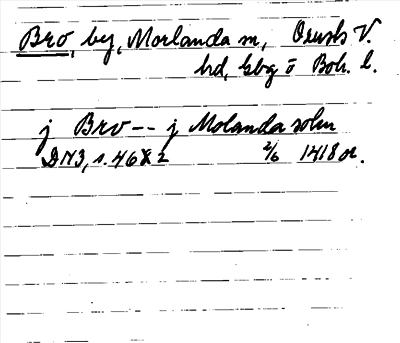 Bro, by, Morlanda sn, Orusts V.
hd, Gbg o Boh. l.
j Bro -- j Molanda sokn
DN3, s. 468 2 2/6 1418 or.